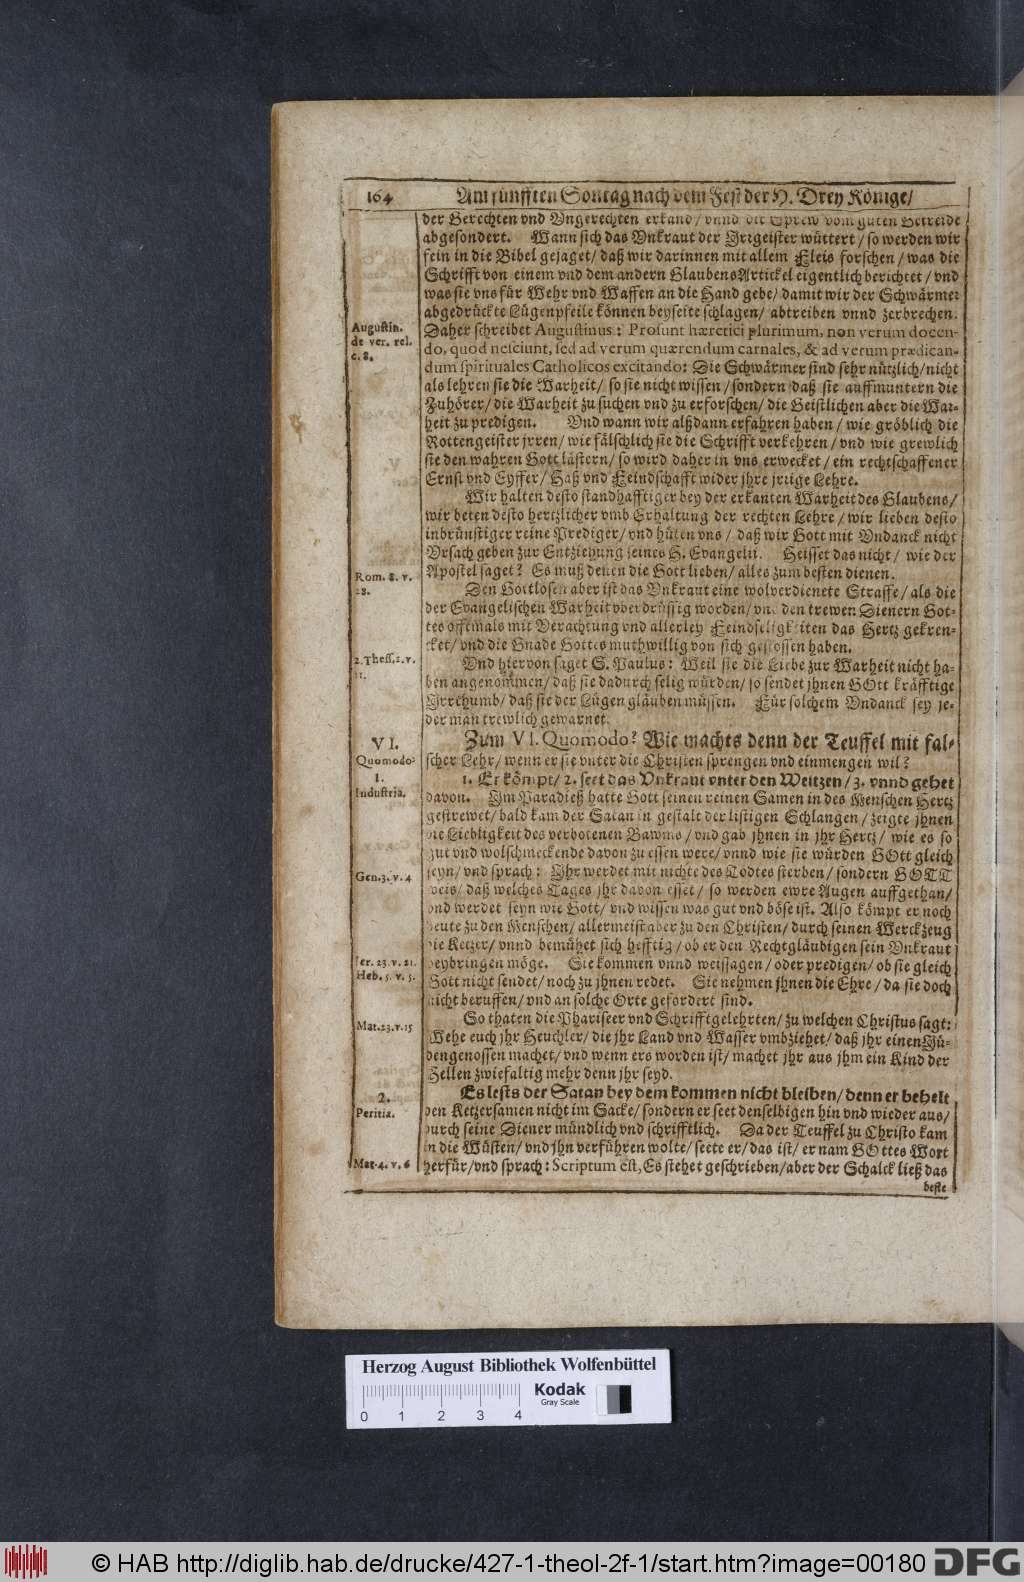 164 Am fünfften Sontag nach dem Fest der H. Drey Könige/
der Gerechten vnd Vngerechten erkand/ vnnd die Sprew vom guten Getreide
abgesondert. Wann sich das Vnkraut der Irrgeister wüttert/ so werden wir
fein in die Bibel gejaget/ daß wir darinnen mit allem Fleis forschen/ was die
Schrifft von einem vnd dem andern GlaubensArtickel eigentlich berichtet/ vnd
was sie vns für Wehr vnd Waffen an die Hand gebe/ damit wir der Schwärmer
abgedrückte Lügenpfeile können beyseite schlagen/ abtreiben vnnd zerbrechen.
Augustin. Daher schreibet Augustinus: Prosunt hæretici plurimum, non verum docen-
de ver. rel. do, quod nesciunt, sed ad verum quærendum carnales, & ad verum prædican-
c. 8. dum spirituales Catholicos excitando: Die Schwärmer sind sehr nützlich/ nicht
als lehren sie die Warheit/ so sie nicht wissen/ sondern daß sie auffmuntern die
Zuhörer/ die Warheit zu suchen vnd zu erforschen/ die Geistlichen aber die War-
heit zu predigen. Vnd wann wir alßdann erfahren haben/ wie gröblich die
Rottengeister jrren/ wie fälschlich sie die Schrifft verkehren/ vnd wie grewlich
sie den wahren Gott lästern/ so wird daher in vns erwecket/ ein rechtschaffener
Ernst vnd Eyffer/ Haß vnd Feindschafft wider jhre jrrige Lehre.
Wir halten desto standhafftiger bey der erkanten Warheit des Glaubens/
wir beten desto hertzlicher vmb Erhaltung der rechten Lehre/ wir lieben desto
inbrünstiger reine Prediger/ vnd hüten vns/ daß wir Gott mit Vndanck nicht
Vrsach geben zur Entziehung seines H. Evangelii. Heisset das nicht/ wie der
Rom. 8. v. Apostel saget? Es muß denen die Gott lieben/ alles zum besten dienen.
28. Den Gottlosen aber ist das Vnkraut eine wolverdienete Straffe/ als die
der Evangelischen Warheit vberdrüssig worden/ vnd den trewen Dienern Got-
tes offtmals mit Verachtung vnd allerley Feindseligkeiten das Hertz gekren-
cket/ vnd die Gnade Gottes muthwillig von sich gestossen haben.
2. Thess. 2. v. Vnd hiervon saget S. Paulus: Weil sie die Liebe zur Warheit nicht ha-
11. ben angenommen/ daß sie dadurch selig würden/ so sendet jhnen GOtt kräfftige
Irrthumb/ daß sie der Lügen gläuben müssen. Für solchem Vndanck sey je-
derman trewlich gewarnet.
VI. Zum VI. Quomodo? Wie machts denn der Teuffel mit fal-
Quomodo? scher Lehr/ wenn er sie vnter die Christen sprengen vnd einmengen wil?
1. 1. Er kömpt/ 2. seet das Vnkraut vnter den Weitzen/ 3. vnnd gehet
Industria. davon. Im Paradieß hatte Gott seinen reinen Samen in des Menschen Hertz
gestrewet/ bald kam der Satan in gestalt der listigen Schlangen/ zeigte jhnen
die Liebligkeit des verbotenen Bawms/ vnd gab jhnen in jhr Hertz/ wie es so
gut vnd wolschmeckende davon zu essen were/ vnnd wie sie würden GOtt gleich
Gen. 3. v. 4 seyn/ vnd sprach: Ihr werdet mit nichte des Todtes sterben/ sondern GOTT
weis/ daß welches Tages jhr davon esset/ so werden ewre Augen auffgethan/
vnd werdet seyn wie Gott/ vnd wissen was gut vnd böse ist. Also kömpt er noch
heute zu den Menschen/ allermeist aber zu den Christen/ durch seinen Werckzeug
die Ketzer/ vnnd bemühet sich hefftig/ ob er den Rechtgläubigen sein Vnkraut
Jer. 23. v. 21. beybringen möge. Sie kommen vnnd weissagen/ oder predigen/ ob sie gleich
Heb. 5. v. 5. Gott nicht sendet/ noch zu jhnen redet. Sie nehmen jhnen die Ehre/ da sie doch
nicht beruffen/ vnd an solche Orte gefordert sind.
Mat. 23. v. 15 So thaten die Phariseer vnd Schrifftgelehrten/ zu welchen Christus sagt:
Wehe euch jhr Heuchler/ die jhr Land vnd Wasser vmbziehet/ daß jhr einen Jü-
dengenossen machet/ vnd wenn ers worden ist/ machet jhr aus jhm ein Kind der
Hellen zwiefaltig mehr denn jhr seyd.
2. Es lests der Satan bey dem kommen nicht bleiben/ denn er behelt
Peritia. den Ketzersamen nicht im Sacke/ sondern er seet denselbigen hin vnd wieder aus/
durch seine Diener mündlich vnd schrifftlich. Da der Teuffel zu Christo kam
in die Wüsten/ vnd jhn verführen wolte/ seete er/ das ist/ er nam GOttes Wort
Mat. 4. v. 6 herfür/ vnd sprach: Scriptum est, Es stehet geschrieben/ aber der Schalck ließ das
beste
Herzog August Bibliothek Wolfenbüttel
0 1 2 3 4
Kodak
Gray Scale
© HAB http://diglib.hab.de/drucke/427-1-theol-2f-1/start.htm?image=00180 DFG